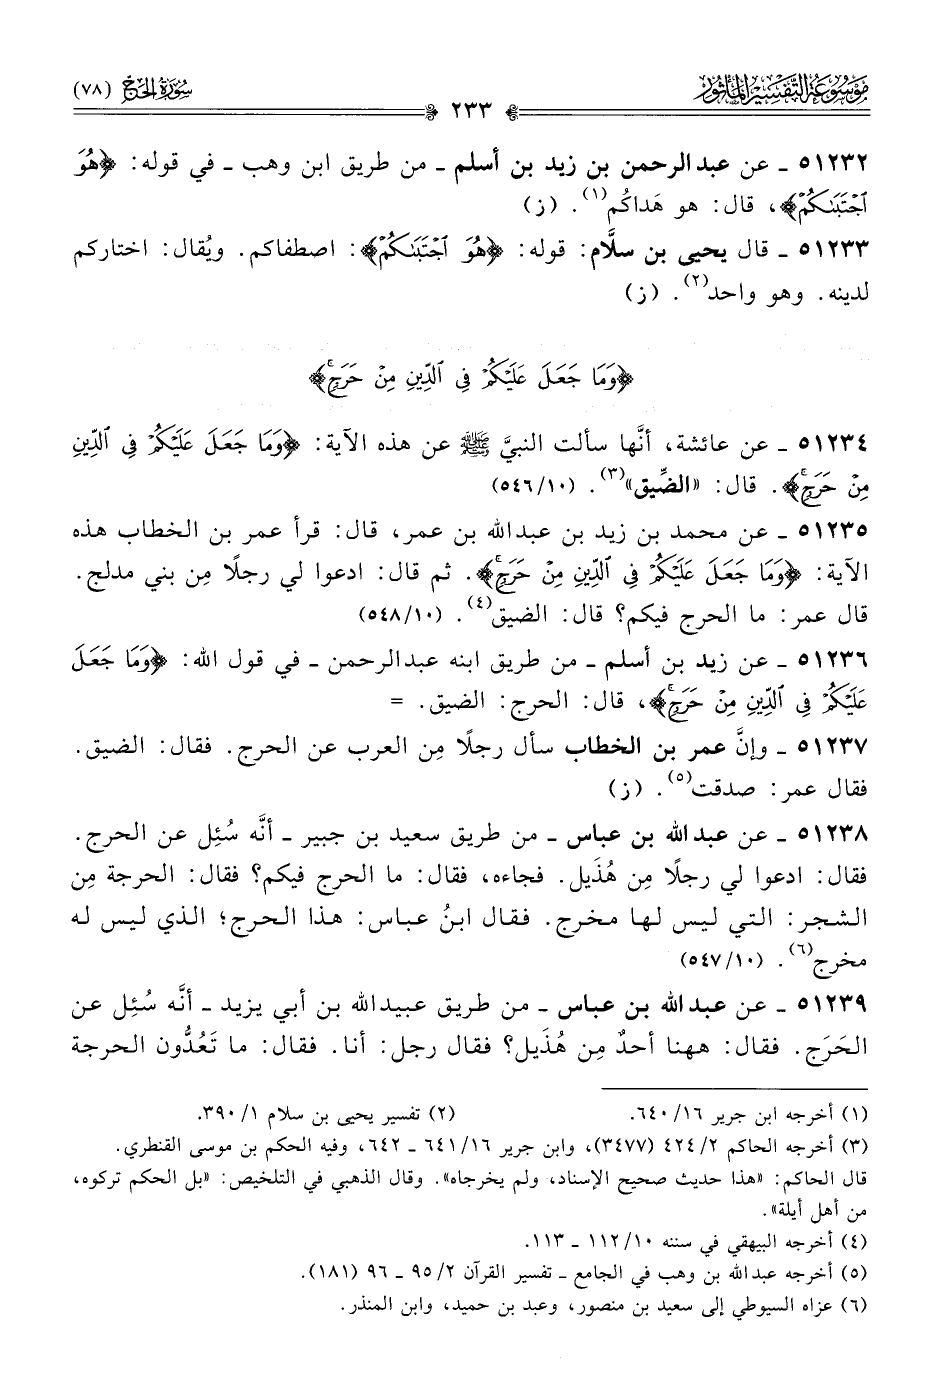 مَوْسُوعَة التَّفْسِيْر المَأثُور
سُورَةُ الحَجِّ (٧٨)
٢٣٣
٥١٢٣٢ ـ عن عبدالرحمن بن زيد بن أسلم ـ من طريق ابن وهب ـ في قوله: ﴿هُوَ
ٱجْتَبَىٰكُمْ﴾، قال: هو هَداكُم(١). (ز)
٥١٢٣٣ ـ قال يحيى بن سلَّام: قوله: ﴿هُوَ ٱجْتَبَىٰكُمْ﴾: اصطفاكم. ويُقال: اختاركم
لدينه. وهو واحد(٢). (ز)
﴿وَمَا جَعَلَ عَلَيْكُمْ فِى ٱلدِّينِ مِنْ حَرَجٍۚ﴾
٥١٢٣٤ ـ عن عائشة، أنَّها سألت النبيَّ ﷺ عن هذه الآية: ﴿وَمَا جَعَلَ عَلَيْكُمْ فِى ٱلدِّينِ
مِنْ حَرَجٍۚ﴾. قال: «الضِّيق»(٣). (٥٤٦/١٠)
٥١٢٣٥ ـ عن محمد بن زيد بن عبدالله بن عمر، قال: قرأ عمر بن الخطاب هذه
الآية: ﴿وَمَا جَعَلَ عَلَيْكُمْ فِى ٱلدِّينِ مِنْ حَرَجٍۚ﴾. ثم قال: ادعوا لي رجلًا مِن بني مدلج.
قال عمر: ما الحرج فيكم؟ قال: الضيق(٤). (٥٤٨/١٠)
٥١٢٣٦ ـ عن زيد بن أسلم ـ من طريق ابنه عبدالرحمن ـ في قول الله: ﴿وَمَا جَعَلَ
عَلَيْكُمْ فِى ٱلدِّينِ مِنْ حَرَجٍۚ﴾، قال: الحرج: الضيق. =
٥١٢٣٧ ـ وإنَّ عمر بن الخطاب سأل رجلًا مِن العرب عن الحرج. فقال: الضيق.
فقال عمر: صدقت(٥). (ز)
٥١٢٣٨ ـ عن عبدالله بن عباس ـ من طريق سعيد بن جبير ـ أنَّه سُئِل عن الحرج.
فقال: ادعوا لي رجلًا مِن هُذَيل. فجاءه، فقال: ما الحرج فيكم؟ فقال: الحرجة مِن
الشجر: التي ليس لها مخرج. فقال ابنُ عباس: هذا الحرج؛ الذي ليس له
مخرج(٦). (٥٤٧/١٠)
٥١٢٣٩ ـ عن عبدالله بن عباس ـ من طريق عبيدالله بن أبي يزيد ـ أنَّه سُئِل عن
الحَرَج. فقال: ههنا أحدٌ مِن هُذَيل؟ فقال رجل: أنا. فقال: ما تَعُدُّون الحرجة
(١) أخرجه ابن جرير ١٦/ ٦٤٠.
(٢) تفسير يحيى بن سلام ١/ ٣٩٠.
(٣) أخرجه الحاكم ٢/ ٤٢٤ (٣٤٧٧)، وابن جرير ١٦/ ٦٤١ ـ ٦٤٢، وفيه الحكم بن موسى القنطري.
قال الحاكم: «هذا حديث صحيح الإسناد، ولم يخرجاه». وقال الذهبي في التلخيص: «بل الحكم تركوه،
من أهل أيلة».
(٤) أخرجه البيهقي في سننه ١٠/ ١١٢ ـ ١١٣.
(٥) أخرجه عبدالله بن وهب في الجامع ـ تفسير القرآن ٢/ ٩٥ ـ ٩٦ (١٨١).
(٦) عزاه السيوطي إلى سعيد بن منصور، وعبد بن حميد، وابن المنذر.